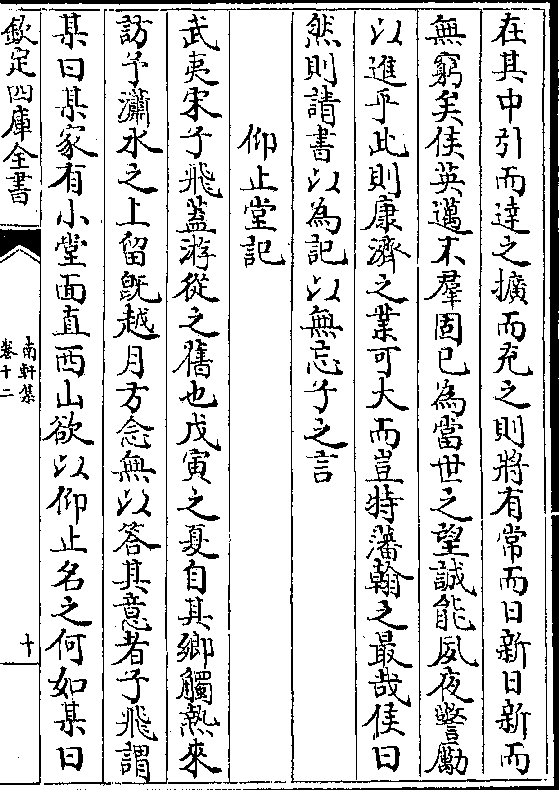 在其中引而達之擴而充之則將有常而日新日新而
無窮矣侯英邁不羣固已為當世之望誠能夙夜警勵
以進乎此則康濟之業可大而豈特藩翰之最哉侯曰
然則請書以為記以無忘子之言
仰止堂記
武夷宋子飛蓋游從之舊也戊寅之夏自其鄉觸熱來
訪予瀟水之上留既越月方念無以答其意者子飛謂
某曰某家有小堂面直西山欲以仰止名之何如某曰
欽定四庫全書
南軒集
卷十二
十